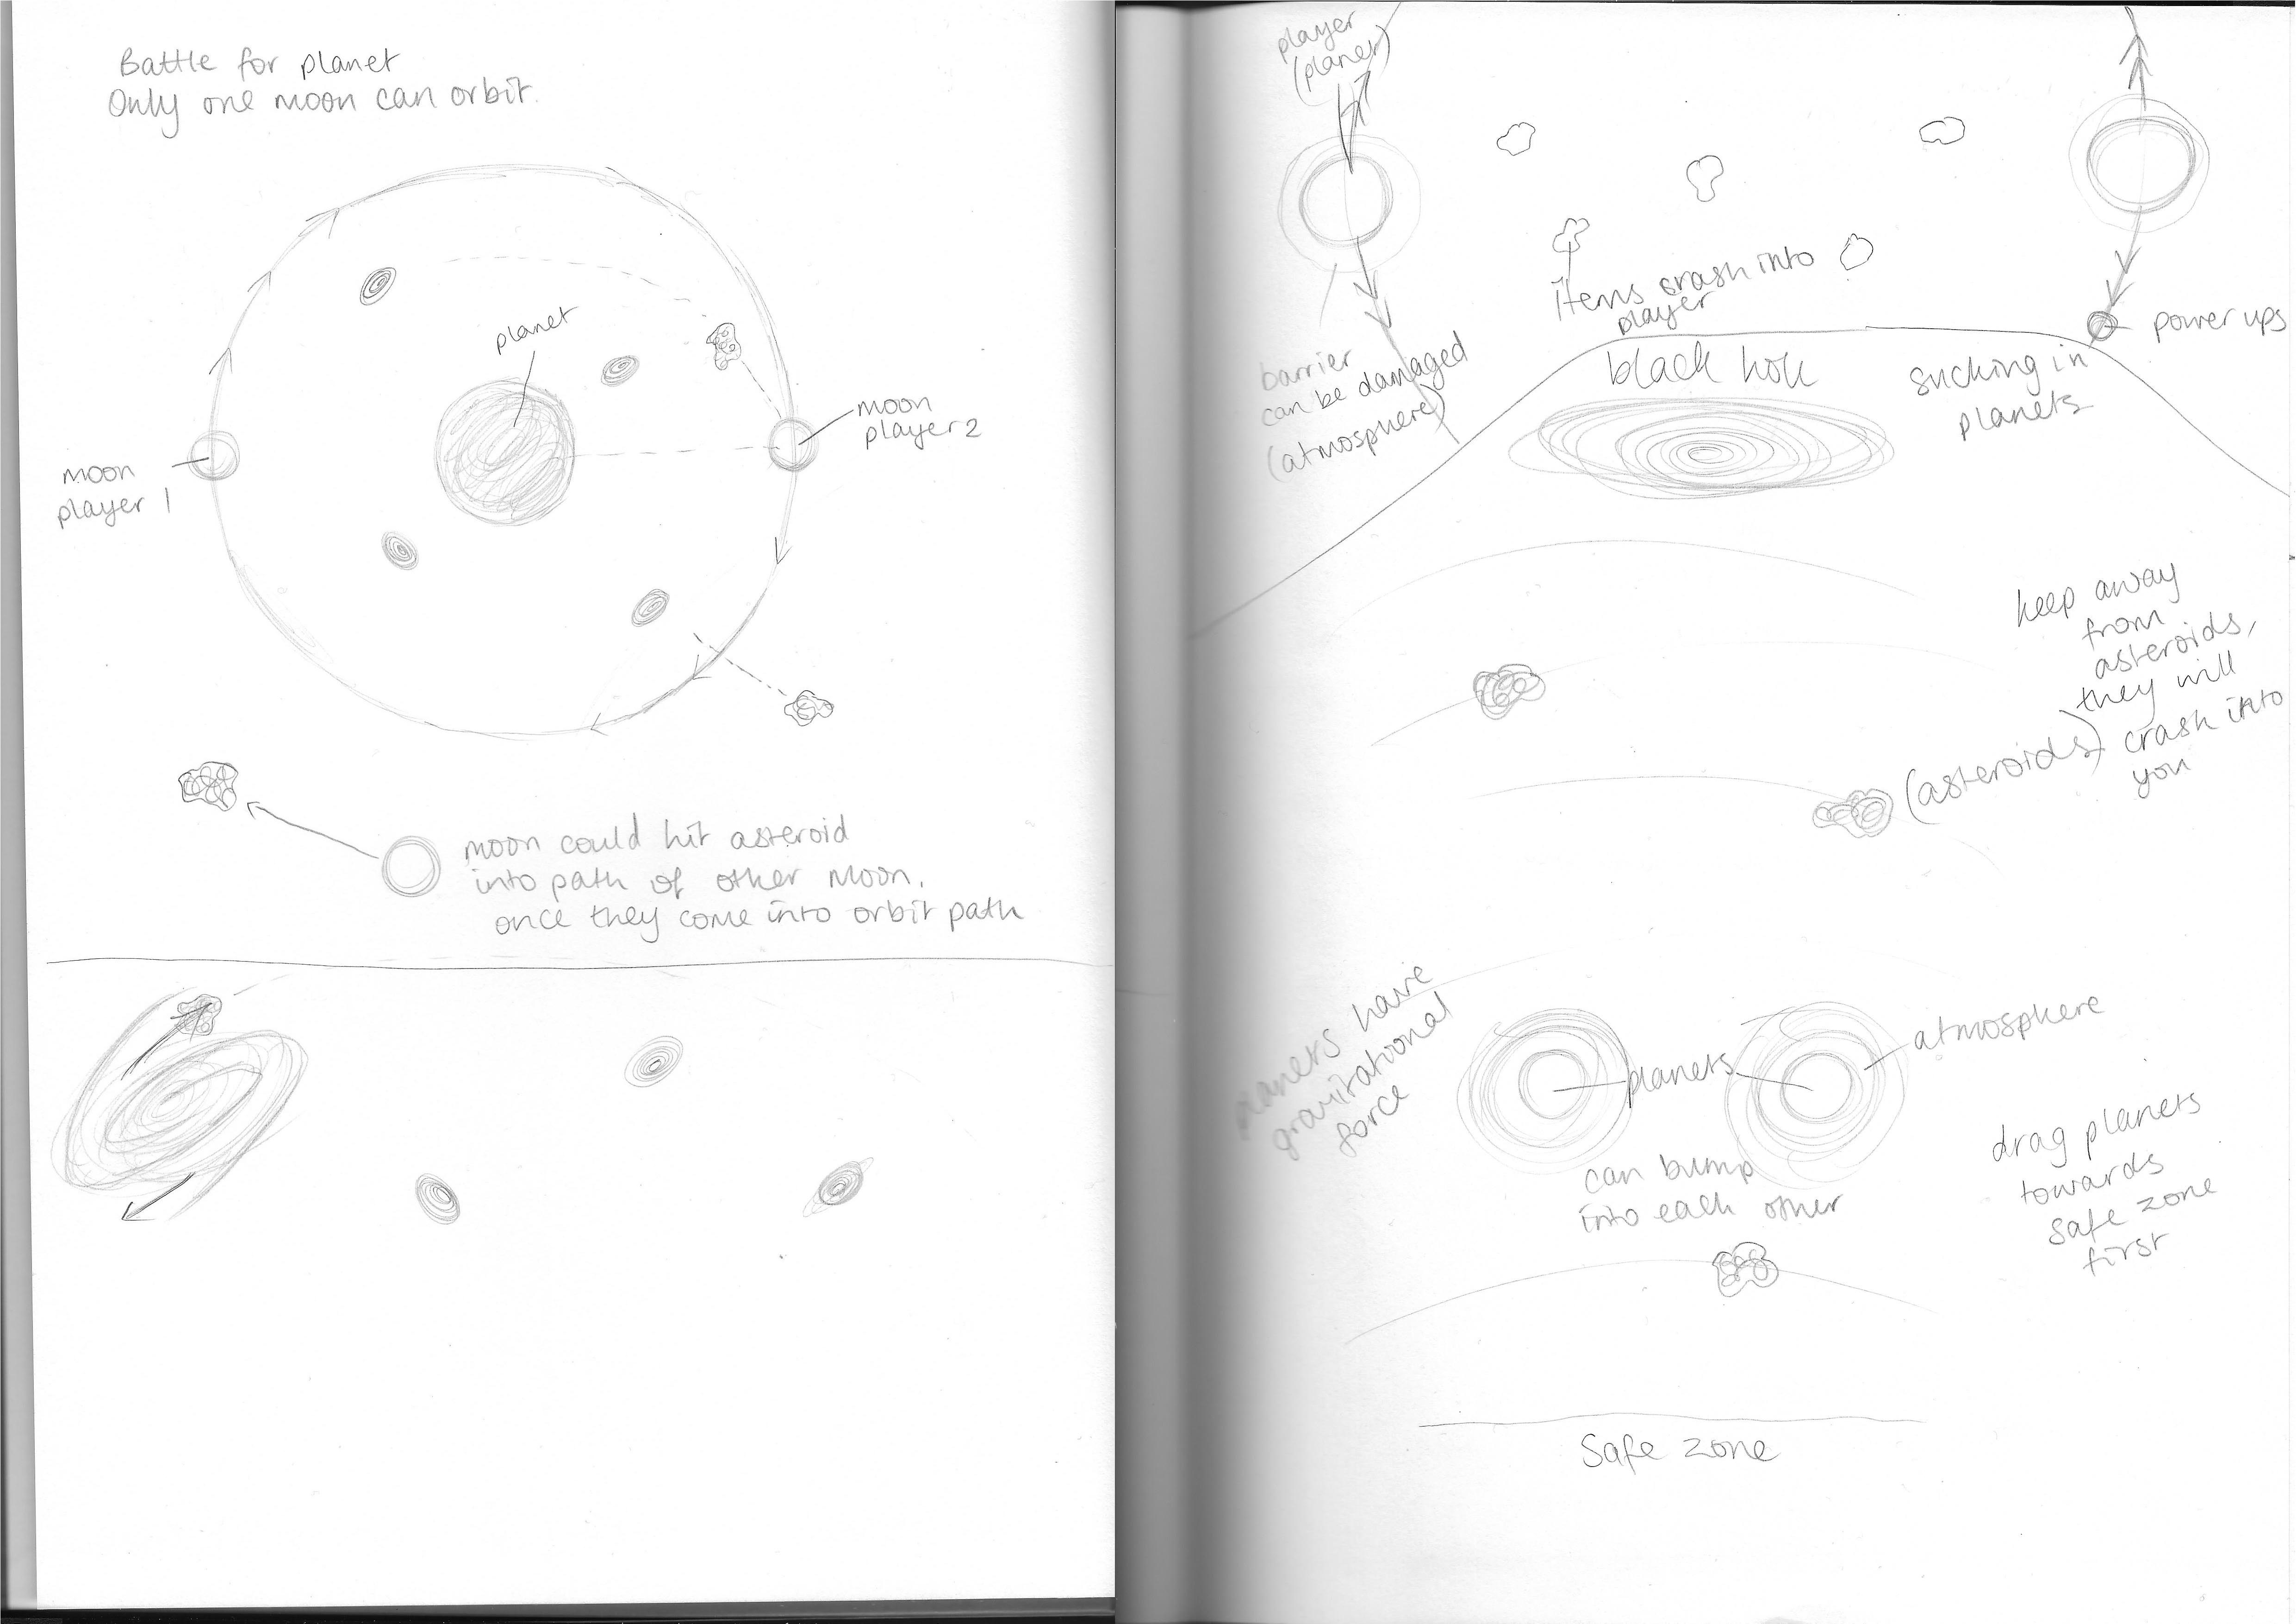 Battle for planet
Only one moon can orbit.
planet
moon
player 2
moon
player 1
moon could hit asteroid
into path of other moon.
once they come into orbit path
player
(planet)
Items crash into
player
power ups
barrier
can be damaged
(atmosphere)
black hole
sucking in
planets
keep away
from
asteroids,
they will
crash into
you
(asteroids)
planets have
gravitational
force
planets
atmosphere
can bump
into each other
drag planets
towards
safe zone
first
Safe zone